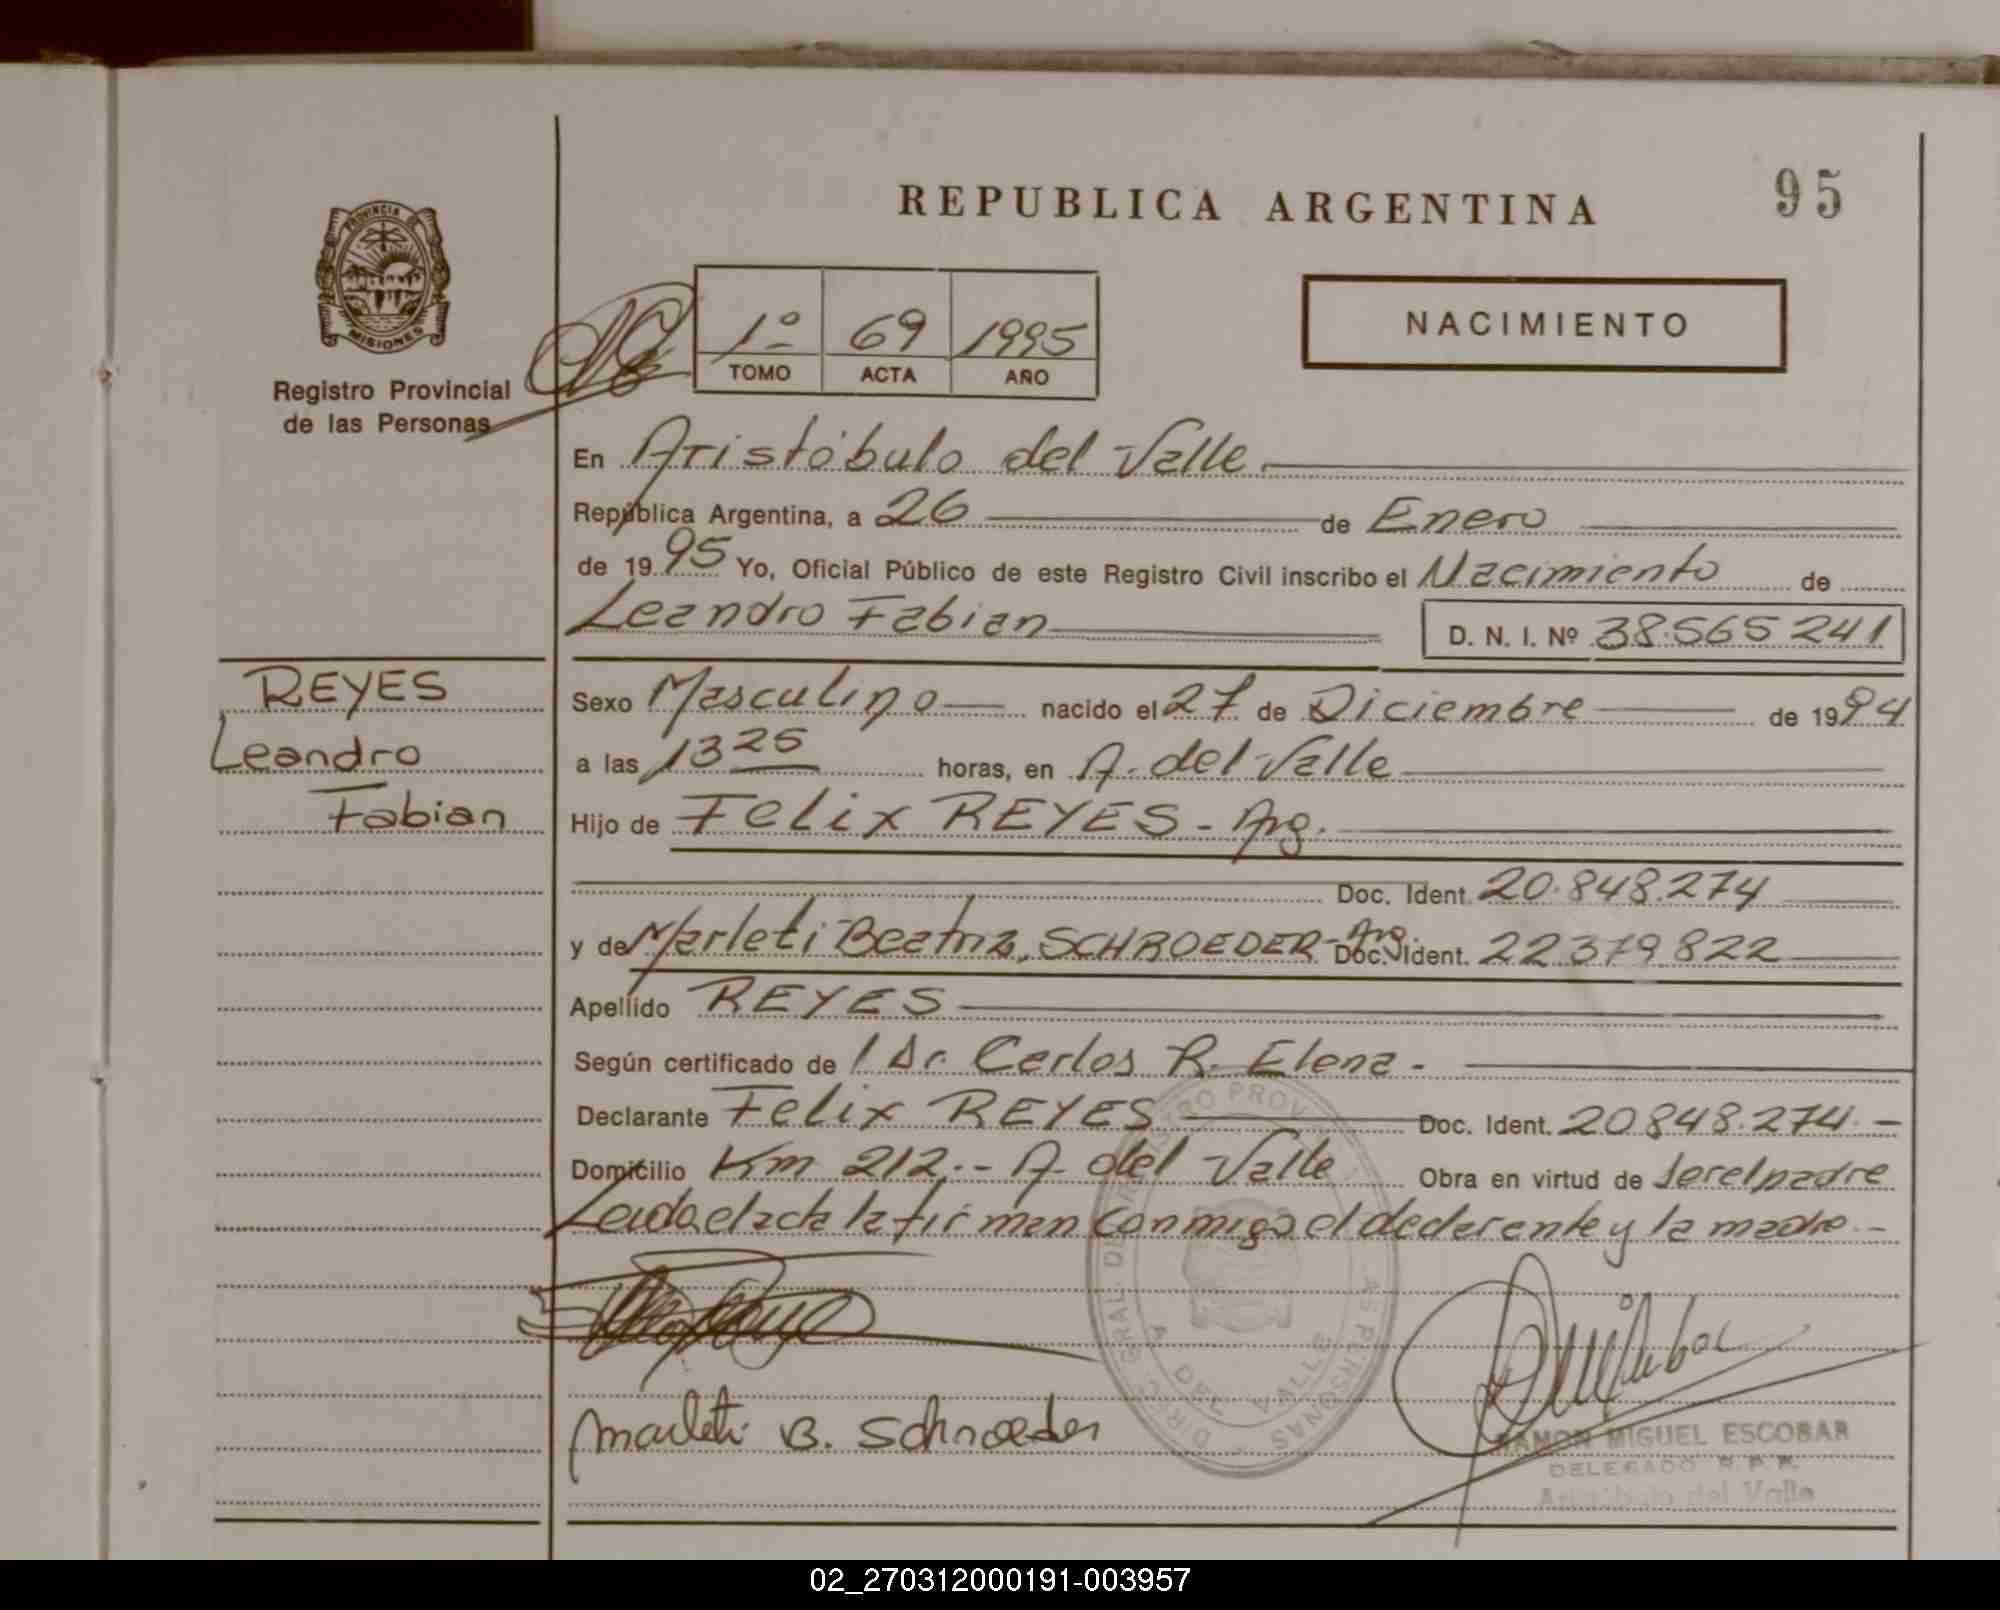 REPUBLICA ARGENTINA
95
PROVINCIA DE
MISIONES
Registro Provincial
de las Personas
1º 69 1995
TOMO ACTA AÑO
NACIMIENTO
En Aristóbulo del Valle
República Argentina, a 26 de Enero
de 1995 Yo, Oficial Público de este Registro Civil inscribo el Nacimiento de
Leandro Fabian
D. N. I. Nº 38.565 241
REYES
Leandro
Fabian
Sexo Masculino nacido el 27 de Diciembre de 1994
a las 13 25 horas, en A. del Valle
Hijo de Felix REYES - Arg.
Doc. Ident. 20.848.274
y de Marleti Beatriz, SCHROEDER - Arg. Doc. Ident. 22379822
Apellido REYES
Según certificado de l Dr. Carlos R. Elena -
Declarante Felix REYES Doc. Ident. 20848.274. -
Domicilio Km 212. - A del Valle Obra en virtud de ser el padre
Leida el acta la firman conmigo el declarante y la madre. -
Marleti B. Schroeder
DIREC. GRAL. DEL REGISTRO PROV. LAS PERSONAS
A. DEL VALLE
RAMON MIGUEL ESCOBAR
DELEGADO R. P. P.
Aristóbulo del Valle
02_270312000191-003957